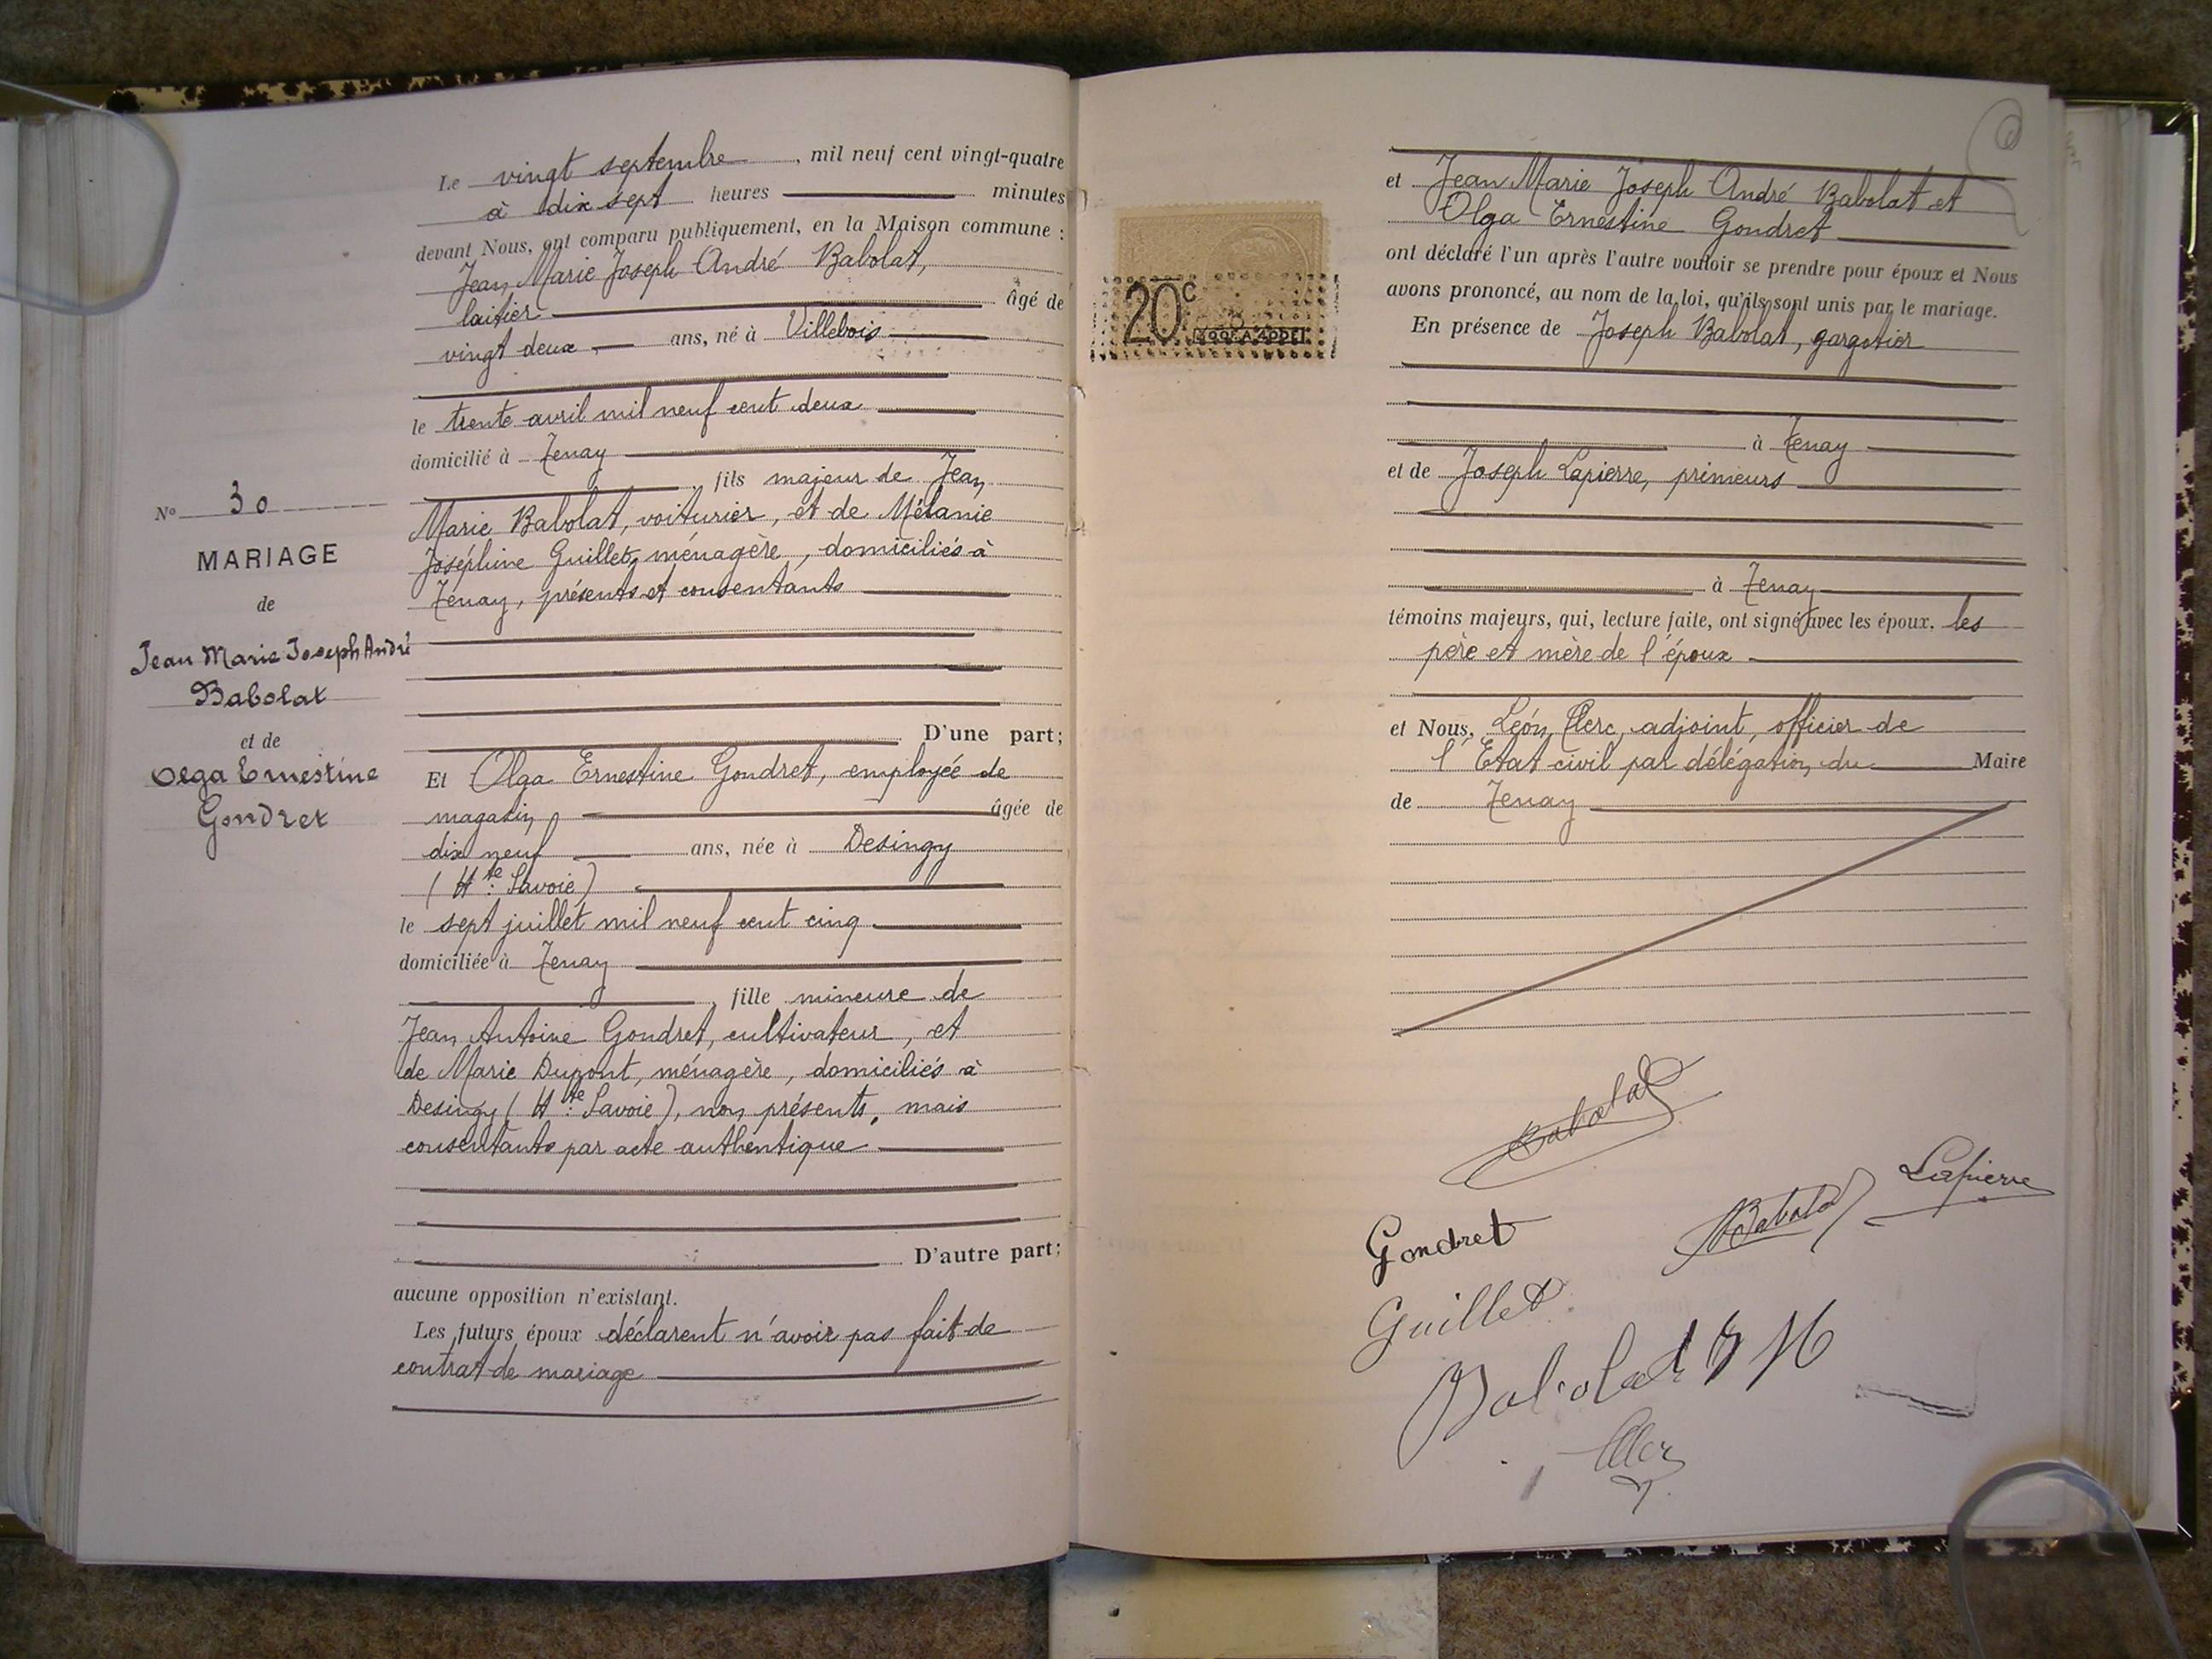 Le vingt septembre, mil neuf cent vingt-quatre
à dix sept heures minutes
devant Nous, ont comparu publiquement, en la Maison commune :
Jean Marie Joseph André Babolat,
laitier âgé de
vingt deux ans, né à Villebois
le trente avril mil neuf cent deux
domicilié à Tenay
, fils majeur de Jean
Marie Babolat, voiturier, et de Mélanie
Joséphine Guillet, ménagère, domiciliés à
Tenay, présents et consentants
D'une part;
Et Olga Ernestine Gondret, employée de
magasin âgée de
dix neuf ans, née à Desingy
(Hte Savoie)
le sept juillet mil neuf cent cinq
domiciliée à Tenay
, fille mineure de
Jean Antoine Gondret, cultivateur, et
de Marie Dupont, ménagère, domiciliés à
Desingy (Hte Savoie), non présents, mais
consentants par acte authentique
D'autre part;
aucune opposition n'existant.
Les futurs époux déclarent n'avoir pas fait de
contrat de mariage
No 30
MARIAGE
de
Jean Marie Joseph André
Babolat
et de
Olga Ernestine
Gondret
20c
et Jean Marie Joseph André Babolat et
Olga Ernestine Gondret
ont déclaré l'un après l'autre vouloir se prendre pour époux et Nous
avons prononcé, au nom de la loi, qu'ils sont unis par le mariage.
En présence de Joseph Babolat, gargotier
à Tenay
et de Joseph Lapierre, primeurs
à Tenay
témoins majeurs, qui, lecture faite, ont signé avec les époux, les
père et mère de l'époux
et Nous, Léon Clerc, adjoint, officier de
l'Etat civil par délégation du Maire
de Tenay
Babolat
Lapierre
Gondret
Babolat
Guillet
Babolat J M